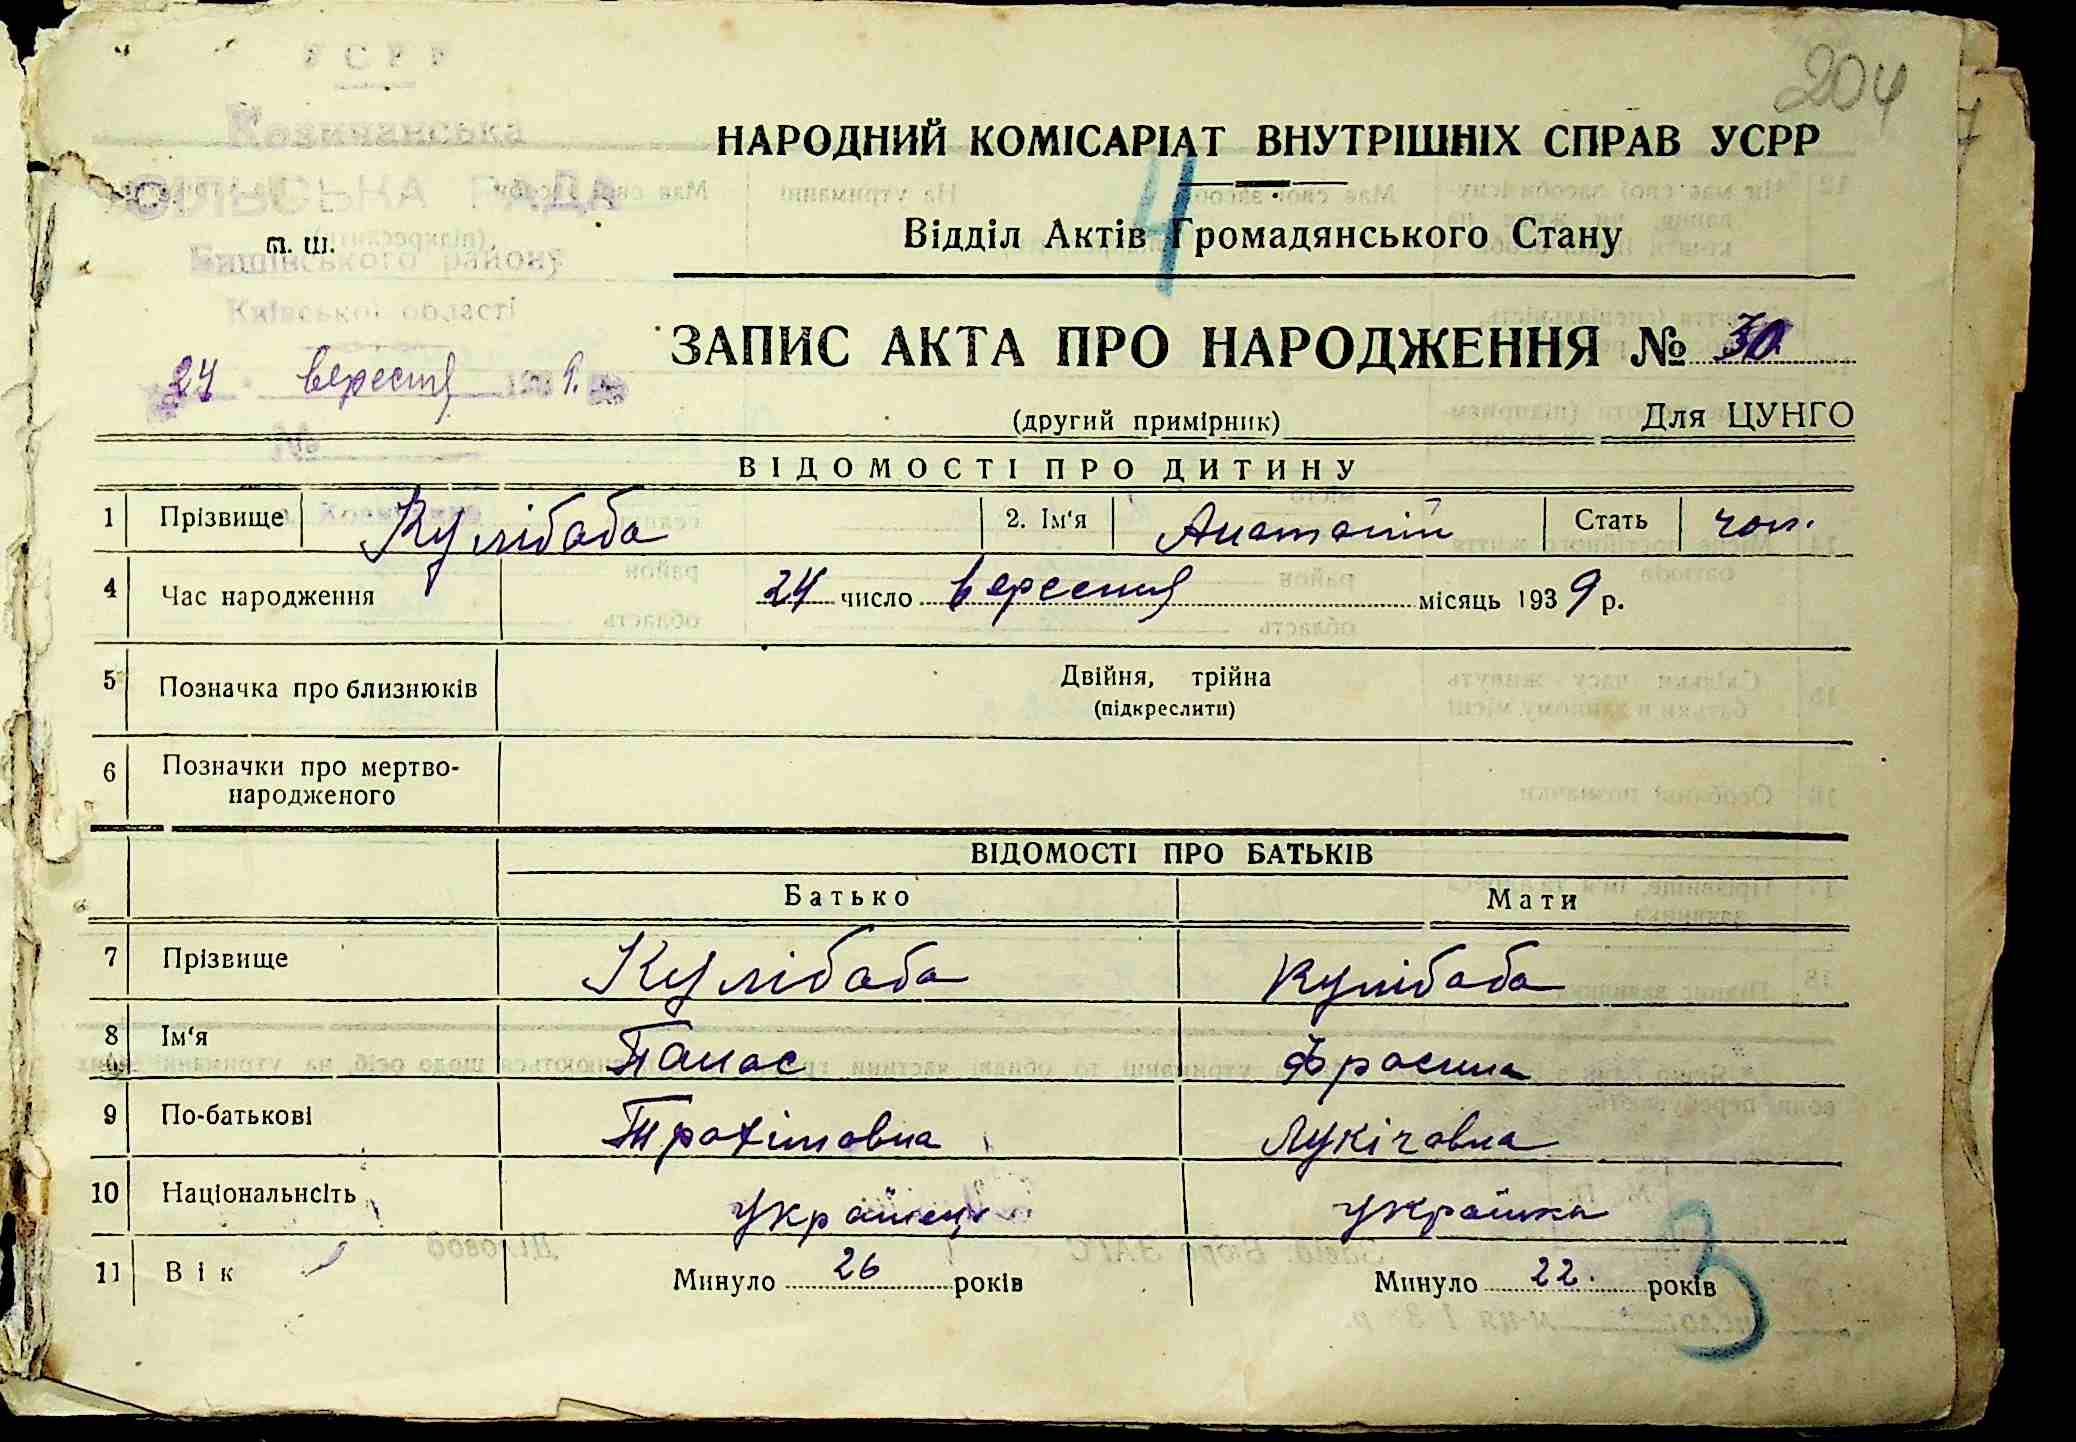 204
УСРР
Кожичанська
СІЛЬСЬКА РАДА
НАРОДНИЙ КОМІСАРІАТ ВНУТРІШНІХ СПРАВ УСРР
4
т. ш.
Відділ Актів Громадянського Стану
Бишівського району
Київської області
ЗАПИС АКТА ПРО НАРОДЖЕННЯ № 30
24 вересня 1939.
(другий примірник) Для ЦУНГО
№
ВІДОМОСТІ ПРО ДИТИНУ
1 Прізвище Кулібаба 2. Ім'я Анатолій Стать чол.
4 Час народження 24 число вересня місяць 1939 р.
5 Позначка про близнюків Двійня, трійна
(підкреслити)
6 Позначки про мертво-
народженого
ВІДОМОСТІ ПРО БАТЬКІВ
Батько Мати
7 Прізвище Кулібаба Кулібаба
8 Ім'я Панас Фросина
9 По-батькові Трохімовна Лукічовна
10 Національнсіть українець українка
11 Вік Минуло 26 років Минуло 22. років
3